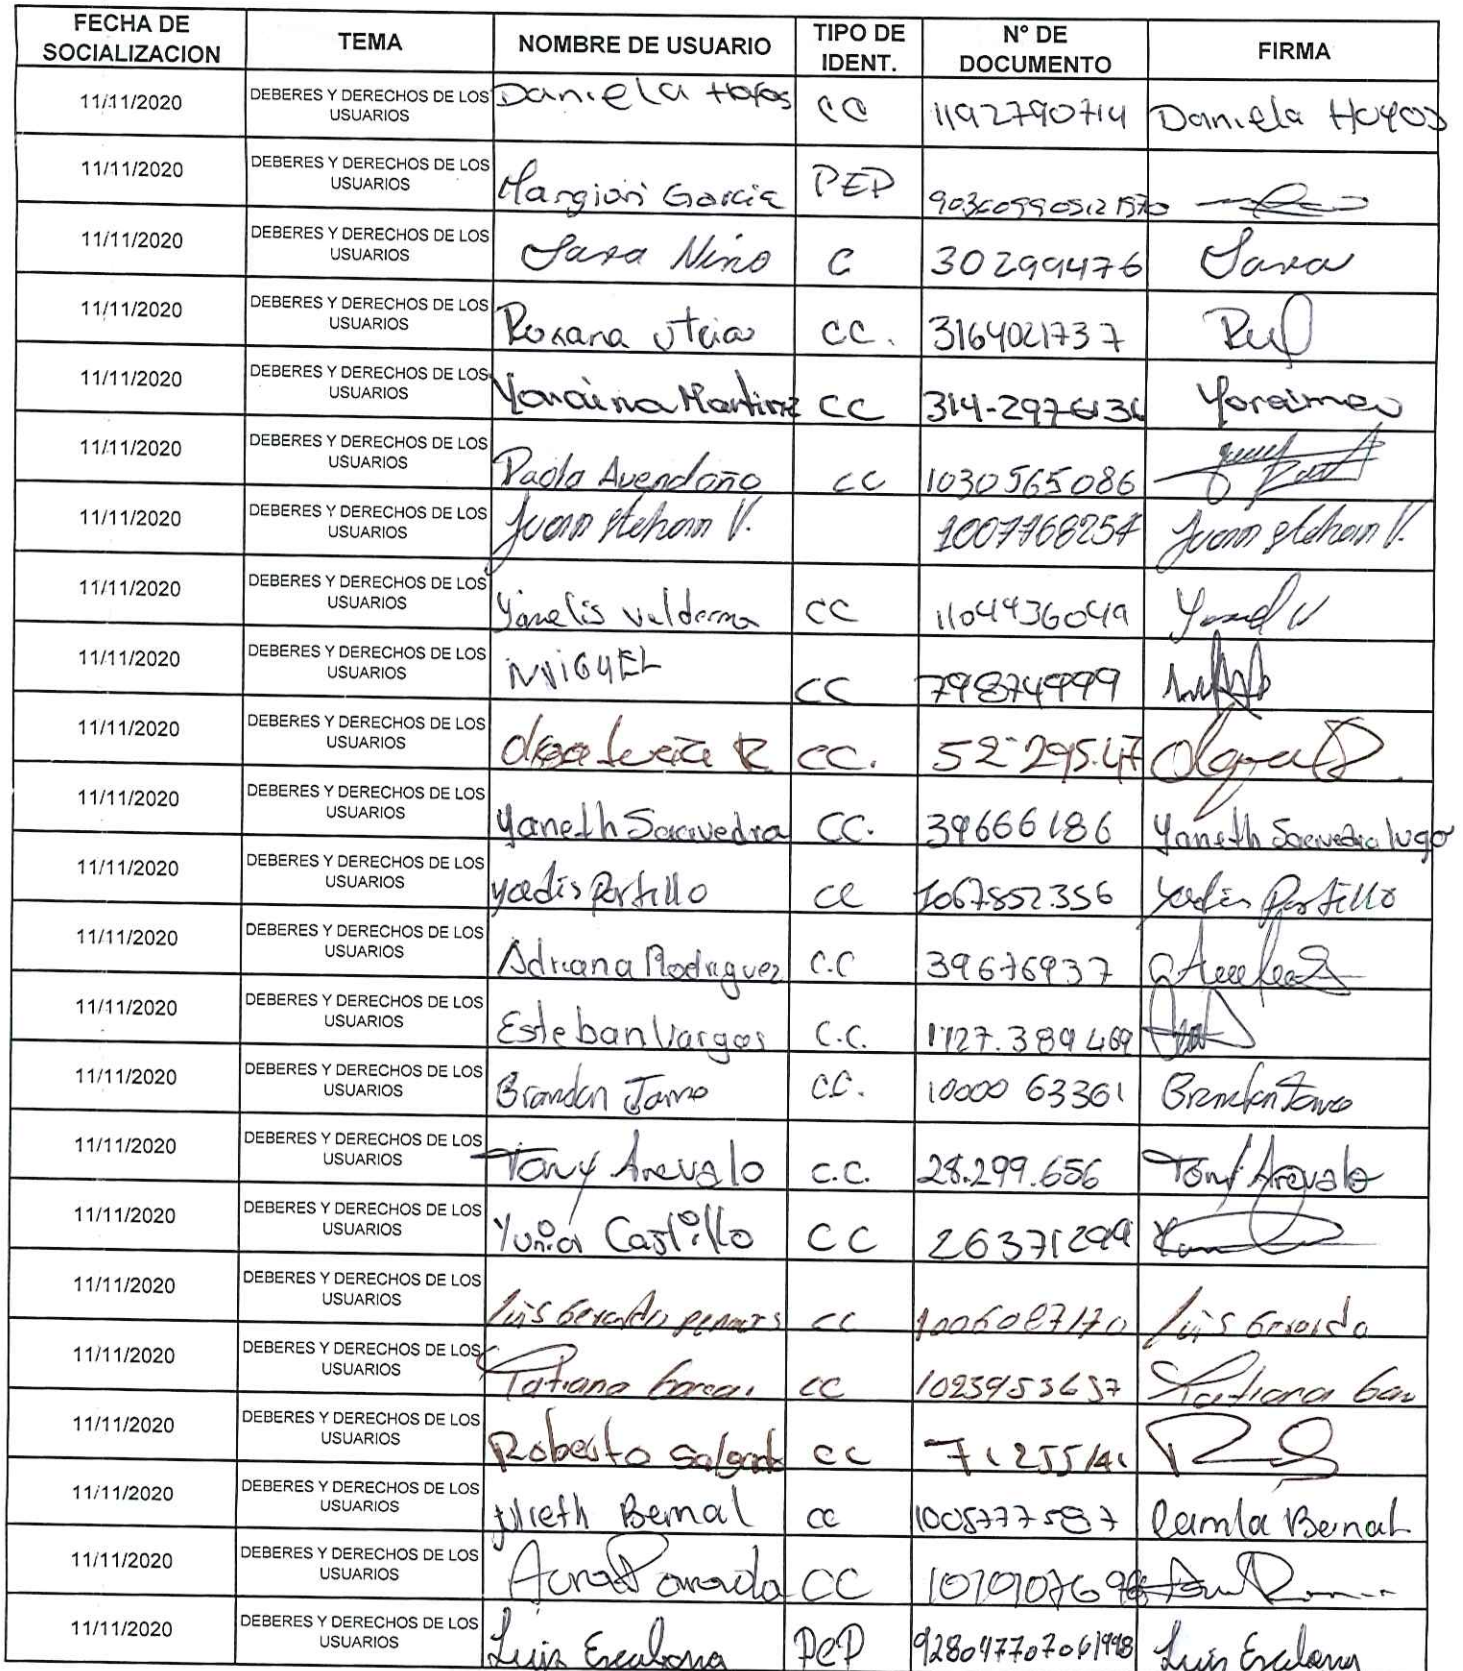 FECHA DE SOCIALIZACION TEMA NOMBRE DE USUARIO TIPO DE IDENT. N° DE DOCUMENTO FIRMA
11/11/2020 DEBERES Y DERECHOS DE LOS USUARIOS Daniela Hoyos CC 1192790714 Daniela Hoyos
11/11/2020 DEBERES Y DERECHOS DE LOS USUARIOS Garcia PEP
11/11/2020 DEBERES Y DERECHOS DE LOS USUARIOS Sara Nino C 30299476 Sara
11/11/2020 DEBERES Y DERECHOS DE LOS USUARIOS Roxana CC. 3164021737
11/11/2020 DEBERES Y DERECHOS DE LOS USUARIOS Yoraima Martinez CC Yoraima
11/11/2020 DEBERES Y DERECHOS DE LOS USUARIOS Paola Avendaño CC 1030565086
11/11/2020 DEBERES Y DERECHOS DE LOS USUARIOS Juan Stehan V. 1007768257 Juan Stehan V.
11/11/2020 DEBERES Y DERECHOS DE LOS USUARIOS Yanelis CC
11/11/2020 DEBERES Y DERECHOS DE LOS USUARIOS MIGUEL CC 79874999
11/11/2020 DEBERES Y DERECHOS DE LOS USUARIOS R CC. 52295.47 Olga
11/11/2020 DEBERES Y DERECHOS DE LOS USUARIOS Yaneth Saavedra CC. 39666186 Yaneth Saavedra lugo
11/11/2020 DEBERES Y DERECHOS DE LOS USUARIOS yadis Portillo CC 1067852.356 yadis Portillo
11/11/2020 DEBERES Y DERECHOS DE LOS USUARIOS Adriana Rodriguez C.C 39676937
11/11/2020 DEBERES Y DERECHOS DE LOS USUARIOS Esteban Vargas C.C. 1127.389469
11/11/2020 DEBERES Y DERECHOS DE LOS USUARIOS Brandon CC. 10000 63361 Brandon
11/11/2020 DEBERES Y DERECHOS DE LOS USUARIOS Tony Arevalo C.C. 28.299.656 Tony Arevalo
11/11/2020 DEBERES Y DERECHOS DE LOS USUARIOS Yunior Castillo CC 26371299
11/11/2020 DEBERES Y DERECHOS DE LOS USUARIOS Luis Gerardo CC 1006087170 Luis Gerardo
11/11/2020 DEBERES Y DERECHOS DE LOS USUARIOS Tatiana CC 1023953637 Tatiana
11/11/2020 DEBERES Y DERECHOS DE LOS USUARIOS Roberto Salgado CC
11/11/2020 DEBERES Y DERECHOS DE LOS USUARIOS Julieth Bernal CC 1005777587 Camila Bernal
11/11/2020 DEBERES Y DERECHOS DE LOS USUARIOS CC
11/11/2020 DEBERES Y DERECHOS DE LOS USUARIOS Luis Escalona PEP 928047707061998 Luis Escalona